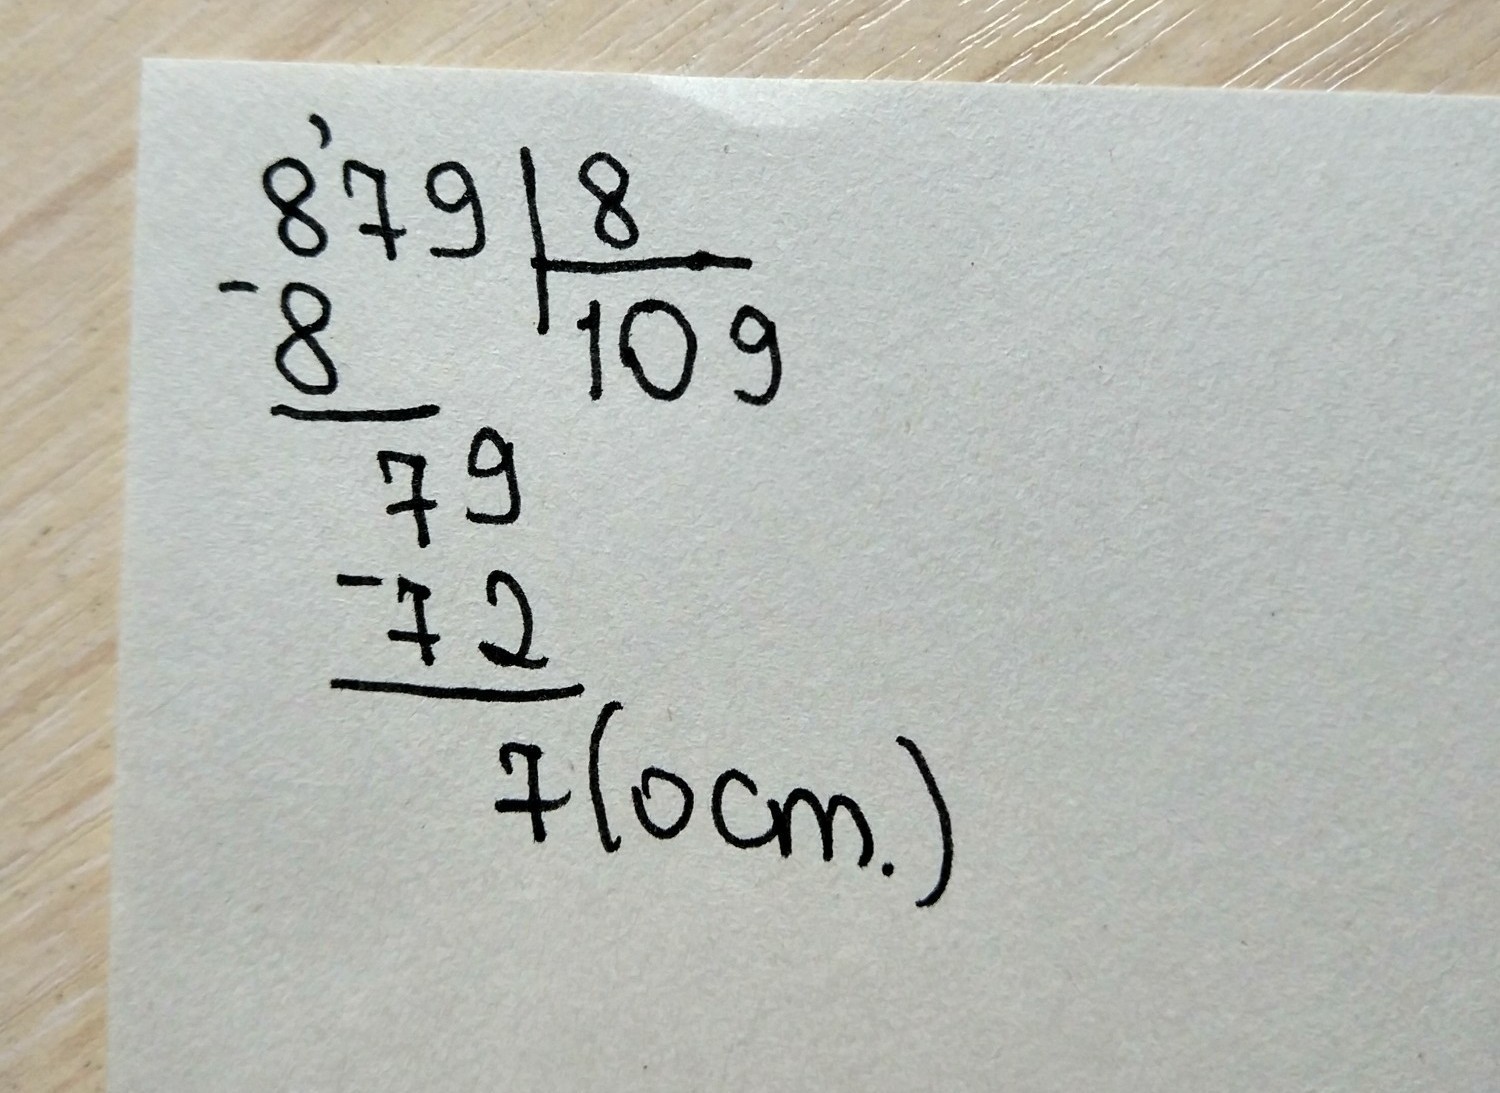 8'79 | 8
-8 109
79
-72
7(ост.)